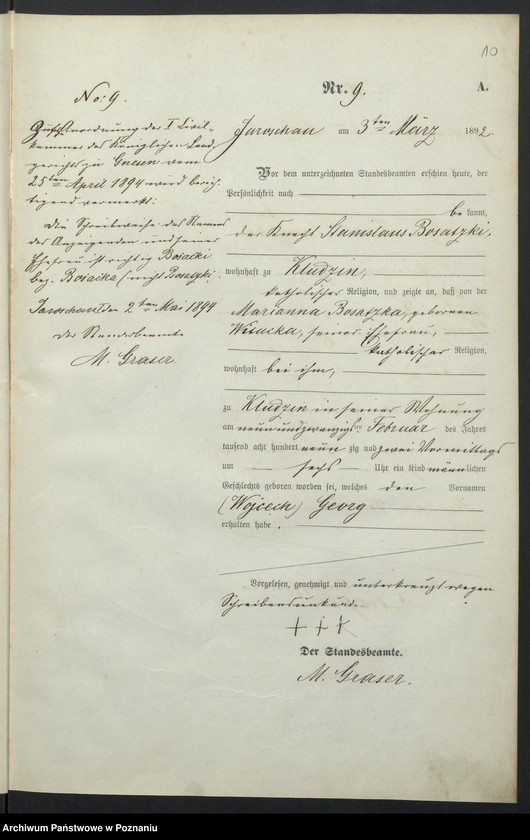 10
No: 9.
Auf Anordnung der I Civil-
kammer des Königlichen Land-
gerichts zu Gnesen vom
25ten April 1894 wird berich-
tigend vermerkt:
Die Schreibweise des Namens
des Anzeigenden und seiner
Ehefrau ist richtig Bosacki
bez. Bosacka (nicht Bosatzki.
Jaroschau den 2ten Mai 1894
Der Standesbeamte
M. Graser
Nr. 9. A.
Jaroschau am 3ten März 1892.
Vor dem unterzeichneten Standesbeamten erschien heute, der
Persönlichkeit nach
be kannt,
der Knecht Stanislaus Bosatzki,
wohnhaft zu Kludzin,
katholischer Religion, und zeigte an, daß von der
Marianna Bosatzka, geborenen
Witucka, seiner Ehefrau,
katholischer Religion,
wohnhaft bei ihm,
zu Kludzin in seiner Wohnung
am neunundzwanzigsten Februar des Jahres
tausend acht hundert neun zig und zwei Vormittags
um sechs Uhr ein Kind männlichen
Geschlechts geboren worden sei, welches den Vornamen
(Wojcech) Georg
erhalten habe.
Vorgelesen, genehmigt und unterkreuzt wegen
Schreibensunkunde.
+ + +
Der Standesbeamte.
M. Graser.
Archiwum Państwowe w Poznaniu